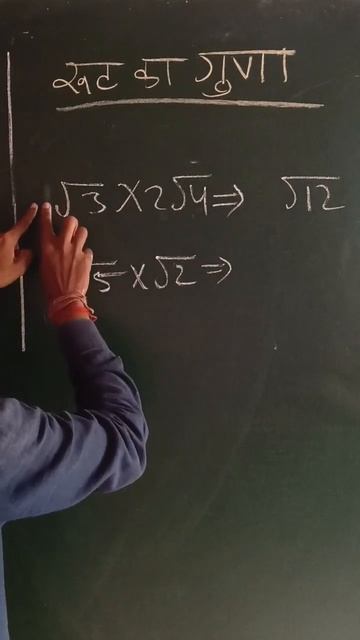 रूट का गुणा
√3 X 2√4 ⇒ √12
√5 X √2 ⇒